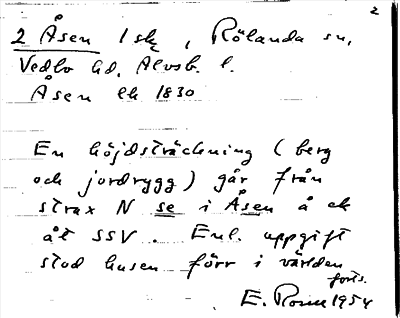 2
2 Åsen 1 sk, Rölanda sn,
Vedbo hd. Älvsb. l.
Åsen ek 1830
En höjdsträckning (berg
och jordrygg) går från
strax N se i Åsen å ek
åt SSV. Enl. uppgift
stod husen förr i världen
forts.
E. Rosm 1954